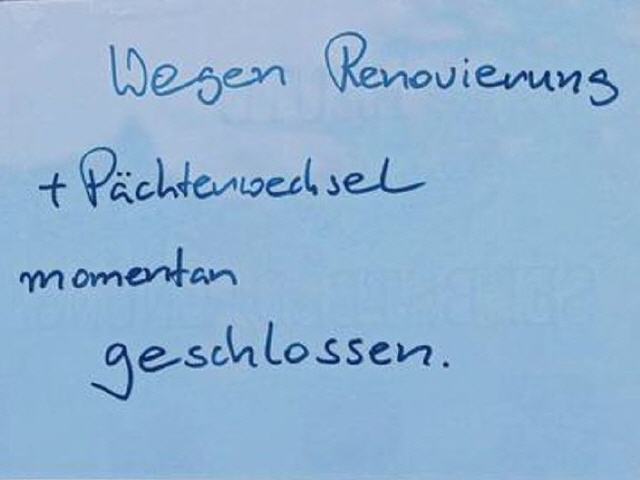 Wegen Renovierung
+ Pächterwechsel
momentan
geschlossen.